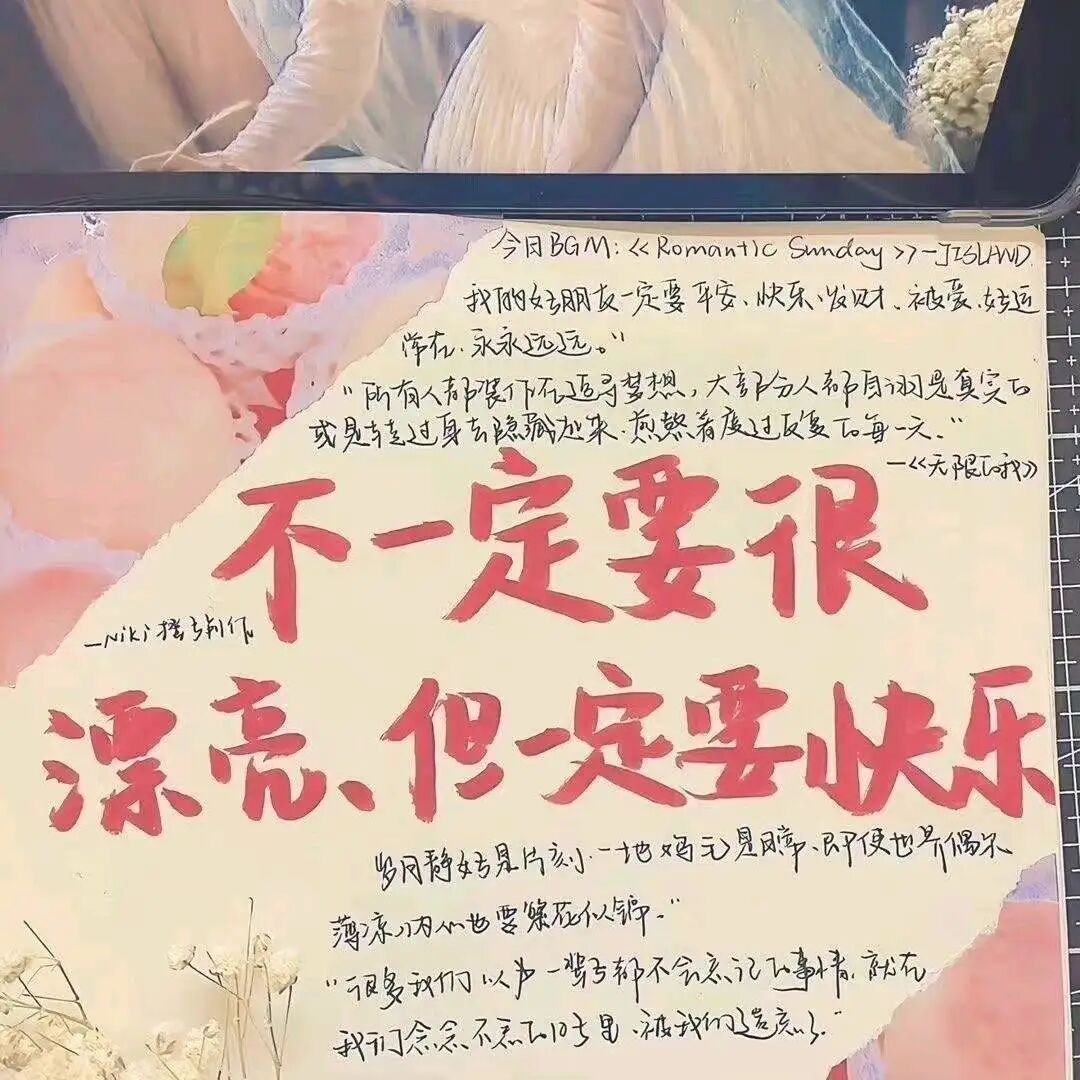 今日BGM:《Romantic Sunday》—JISLAND.
我的好朋友一定要平安、快乐、发财、被爱、好运
常在、永永远远。"
"所有人都装作在追寻梦想,大部分人都自诩是真实的
或是转过身去隐藏起来、煎熬着度过反复的每一天。"
—《无限的我》
不一定要很
—Niki
漂亮、但一定要快乐
岁月静好是片刻、一地鸡毛是日常、即便世界偶尔
薄凉、内心也要繁花似锦。"
"很多我们以为一辈子都不会忘记的事情、就在
我们念念不忘的日子里、被我们遗忘了。"